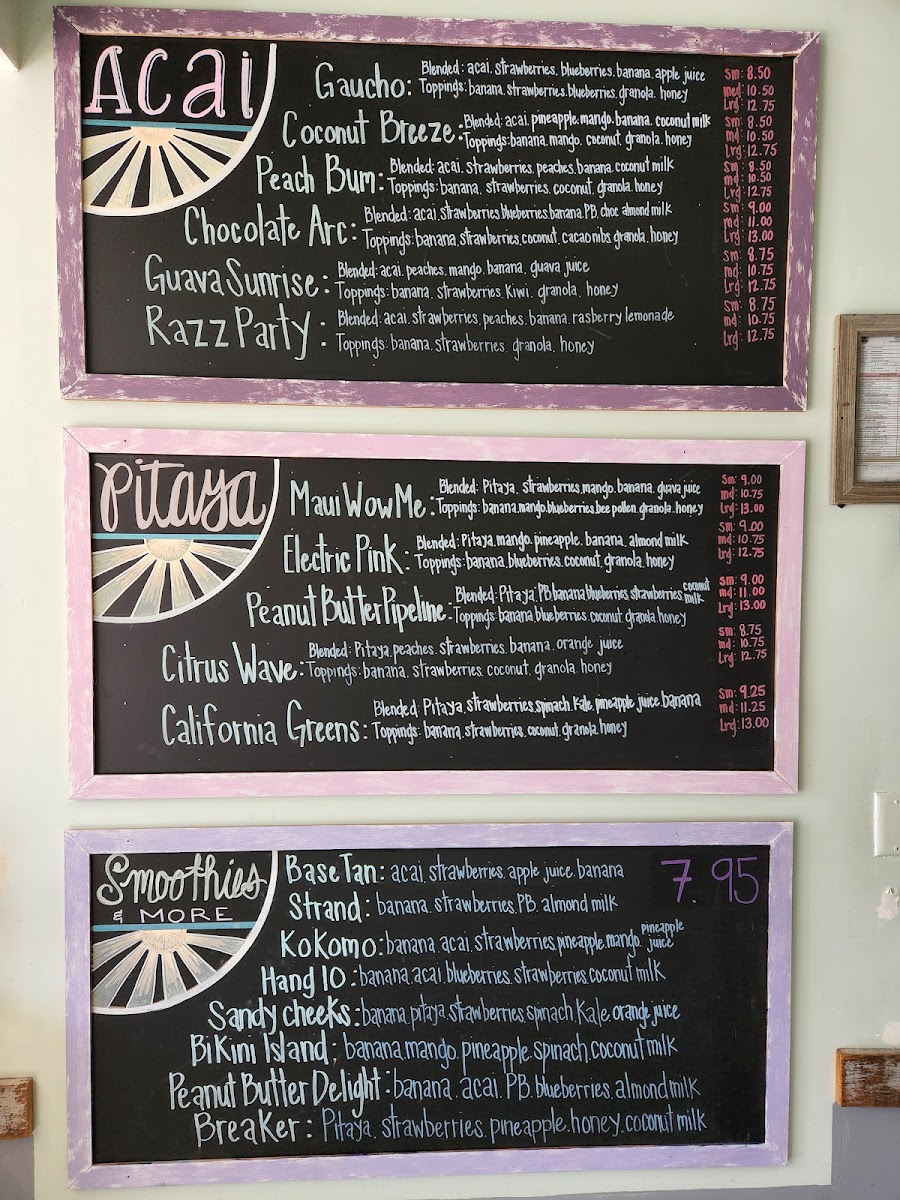 Acai
Gaucho: Blended: acai. strawberries. blueberries. banana. apple juice
Toppings: banana. strawberries. blueberries. granola. honey
Sm: 8.50
med: 10.50
Lrg: 12.75
Coconut Breeze: Blended: acai. pineapple. mango. banana. coconut milk
Toppings: banana. mango. coconut. granola. honey
Sm: 8.50
md: 10.50
Lrg: 12.75
Peach Bum: Blended: acai. strawberries. peaches. banana. coconut milk
Toppings: banana. strawberries. coconut. granola. honey
Sm: 8.50
md: 10.50
Lrg: 12.75
Chocolate Arc: Blended: acai. strawberries. blueberries. banana. PB. choc almond milk
Toppings: banana. strawberries. coconut. cacao nibs. granola. honey
Sm: 9.00
md: 11.00
Lrg: 13.00
Guava Sunrise: Blended: acai. peaches. mango. banana. guava juice
Toppings: banana. strawberries. Kiwi. granola. honey
Sm: 8.75
md: 10.75
Lrg: 12.75
Razz Party: Blended: acai. strawberries. peaches. banana. rasberry lemonade
Toppings: banana. strawberries. granola. honey
Sm: 8.75
md: 10.75
Lrg: 12.75
Pitaya
Maui Wow Me: Blended: Pitaya. strawberries. mango. banana. guava juice
Toppings: banana. mango. blueberries. bee pollen. granola. honey
Sm: 9.00
md: 10.75
Lrg: 13.00
Electric Pink: Blended: Pitaya. mango. pineapple. banana. almond milk
Toppings: banana. blueberries. coconut. granola. honey
Sm: 9.00
md: 10.75
Lrg: 12.75
Peanut Butter Pipeline: Blended: Pitaya. PB. banana. blueberries. strawberries. coconut milk
Toppings: banana. blueberries. coconut. granola. honey
Sm: 9.00
md: 11.00
Lrg: 13.00
Citrus Wave: Blended: Pitaya. peaches. strawberries. banana. orange juice
Toppings: banana. strawberries. coconut. granola. honey
Sm: 8.75
md: 10.75
Lrg: 12.75
California Greens: Blended: Pitaya. strawberries. spinach. Kale. pineapple juice. banana
Toppings: banana. strawberries. coconut. granola. honey
Sm: 9.25
md: 11.25
Lrg: 13.00
Smoothies
& MORE
7.95
Base Tan: acai. strawberries. apple juice. banana
Strand: banana. strawberries. PB. almond milk
Kokomo: banana. acai. strawberries. pineapple. mango. pineapple juice
Hang 10: banana. acai. blueberries. strawberries. coconut milk
Sandy cheeks: banana. pitaya. strawberries. spinach. Kale. orange juice
Bikini Island: banana. mango. pineapple. spinach. coconut milk
Peanut Butter Delight: banana. acai. PB. blueberries. almond milk
Breaker: Pitaya. strawberries. pineapple. honey. coconut milk